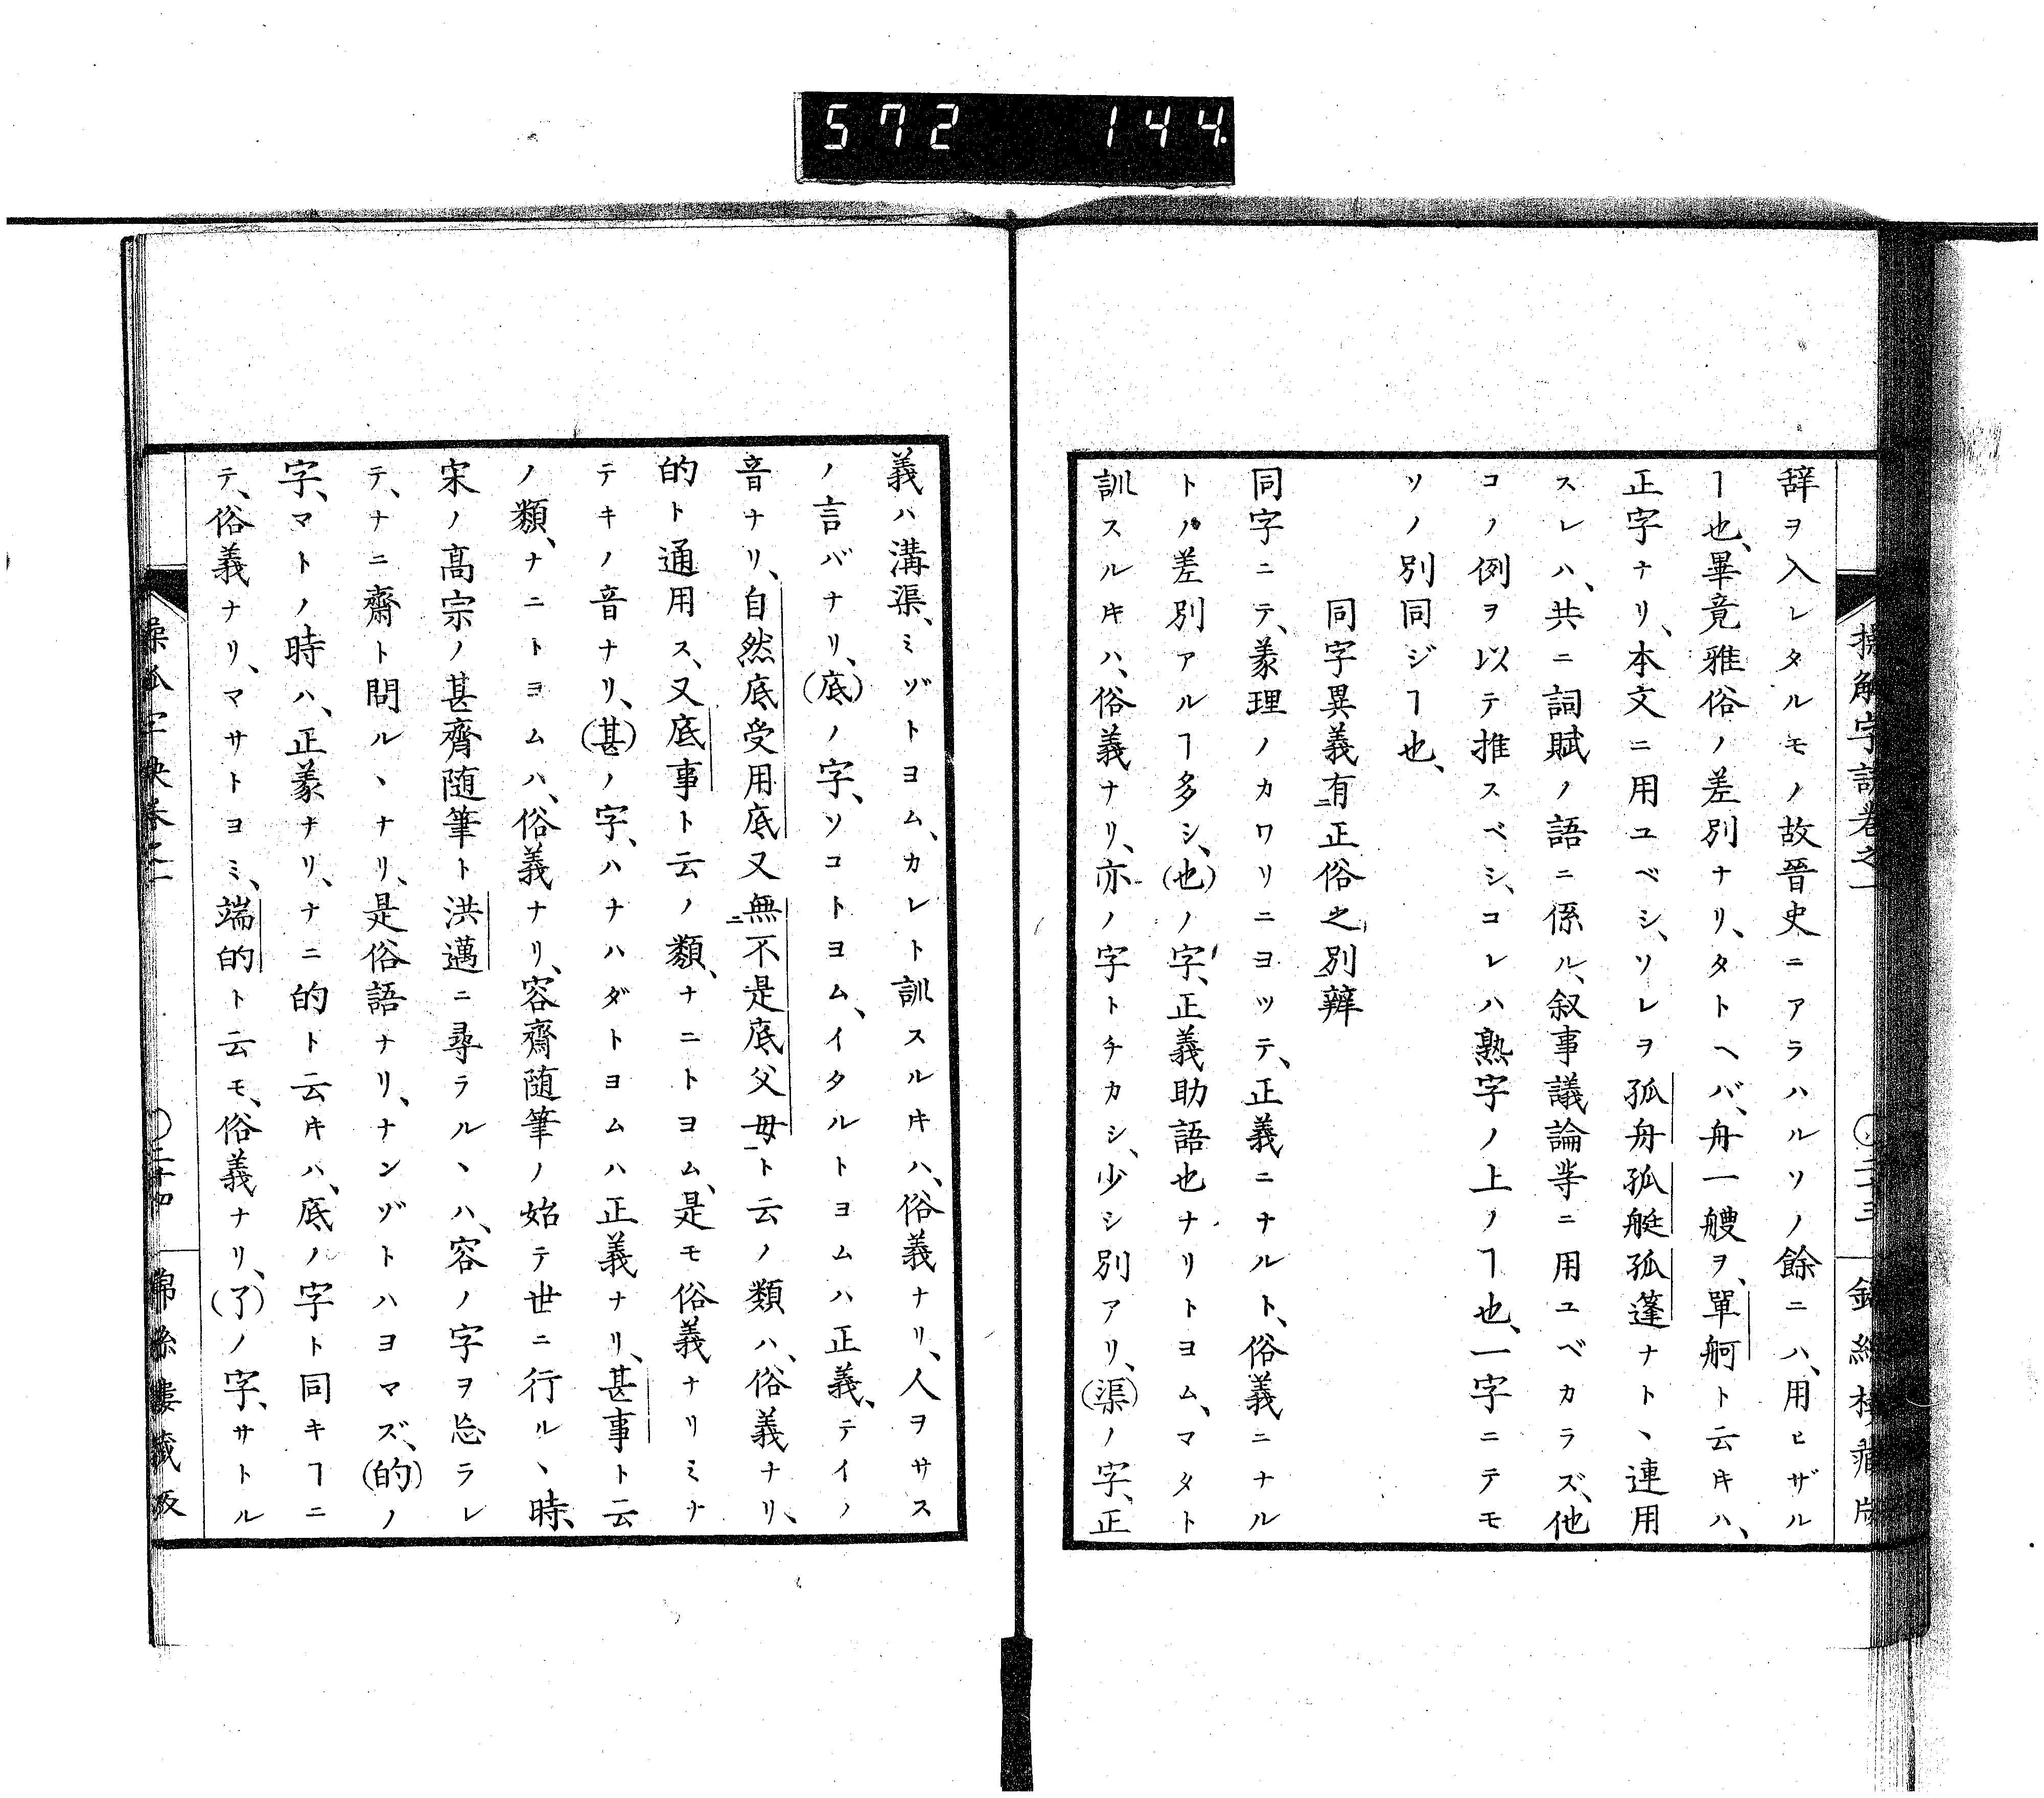 572 144.
辞ヲ入レタルモノ故晉史ニアラハルソノ餘ニハ、用ヒザル
ヿ也、畢竟雅俗ノ差別ナリ、タトヘバ、舟一艘ヲ、單舸ト云𪜈ハ、
正字ナリ、本文ニ用ユベシ、ソレヲ孤舟孤艇孤蓬ナト、連用
スレハ、共ニ詞賦ノ語ニ係ル、叙事議論䓁ニ用ユベカラズ、他
コノ例ヲ以テ推スベシ、コレハ熟字ノ上ノヿ也、一字ニテモ
ソノ別同ジヿ也、
同字異義有ニ正俗之別辨
同字ニテ、義理ノカワリニヨツテ、正義ニナルト、俗義ニナル
トノ差別アルヿ多シ、(也)ノ字、正義助語也ナリトヨム、マタト
訓スル𪜈ハ、俗義ナリ、亦ノ字トチカシ、少シ別アリ、(渠)ノ字、正
義ハ溝渠、ミゾトヨム、カレト訓スル𪜈ハ、俗義ナリ、人ヲサス
ノ言バナリ、(底)ノ字、ソコトヨム、イタルトヨムハ正義、テイノ
音ナリ、自然底受用底又無ニ不是底父母一ト云ノ類ハ、俗義ナリ、
的ト通用ス、又底事ト云ノ類、ナニトヨム、是モ俗義ナリミナ
テキノ音ナリ、(甚)ノ字、ハナハダトヨムハ正義ナリ、甚事ト云
ノ類、ナニトヨムハ、俗義ナリ、容齋随筆ノ始テ世ニ行ルヽ時、
宋ノ高宗ノ甚齊随筆ト洪邁ニ尋ラルヽハ、容ノ字ヲ忘ラレ
テ、ナニ齋ト問ルヽナリ、是俗語ナリ、ナンゾトハヨマズ、(的)ノ
字、マトノ時ハ、正義ナリ、ナニ的ト云𪜈ハ、底ノ字ト同キヿニ
テ、俗義ナリ、マサトヨミ、端的ト云モ、俗義ナリ、(了)ノ字、サトル